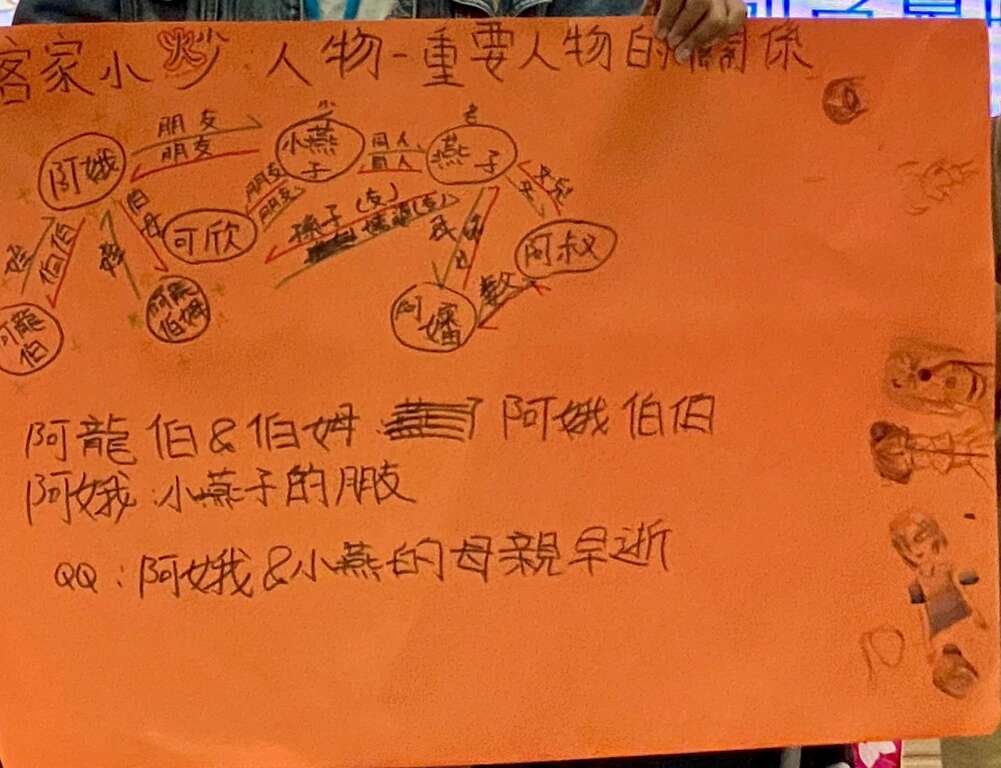 客家小炒 人物-重要人物的關係
朋友
朋友
阿娥
少
小燕子
同人
同人
老
燕子
朋友
朋友
可欣
伯母
伯伯
孫子(友)
阿叔
阿龍伯
阿龍伯姆
阿嬸
阿龍伯&伯姆 阿娥伯伯
阿娥:小燕子的朋友
QQ:阿娥&小燕的母親早逝